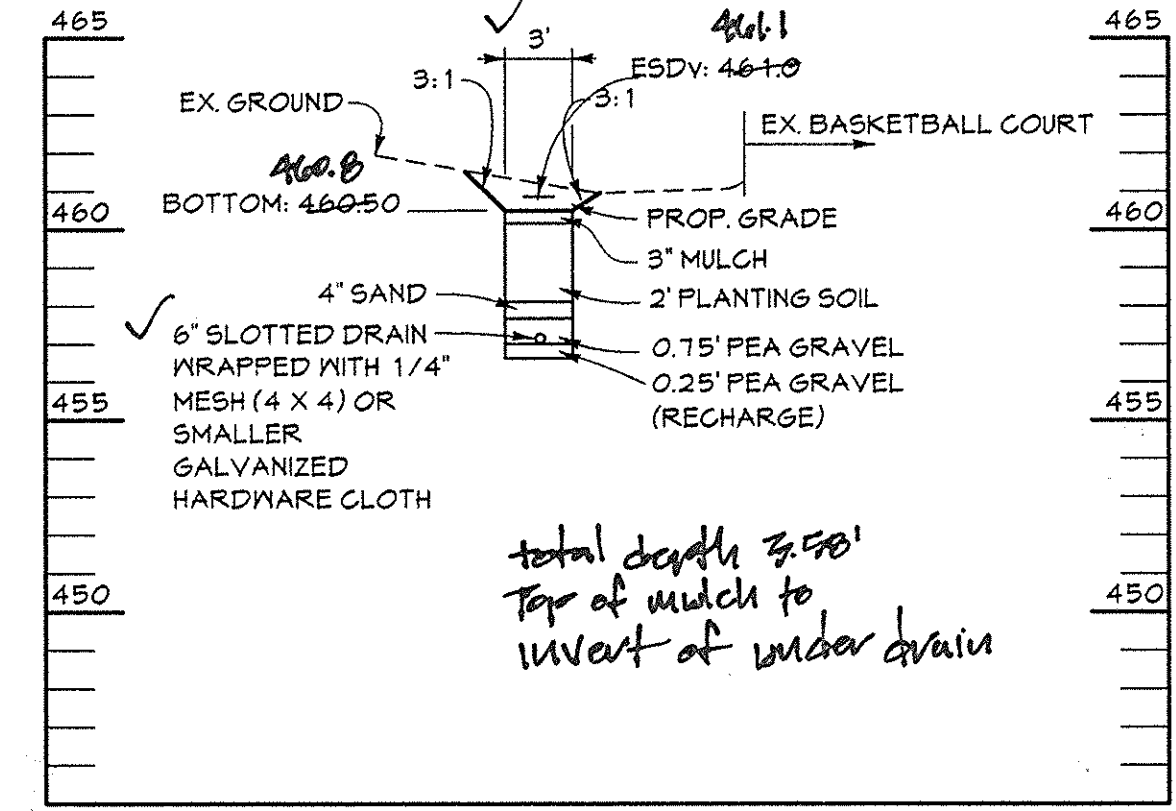 465
465
3'
461.1
ESDv: 461.0
3:1
3:1
EX. GROUND
EX. BASKETBALL COURT
460.8
BOTTOM: 460.50
460
460
PROP. GRADE
3" MULCH
4" SAND
2' PLANTING SOIL
6" SLOTTED DRAIN
WRAPPED WITH 1/4"
MESH (4 X 4) OR
SMALLER
GALVANIZED
HARDWARE CLOTH
0.75' PEA GRAVEL
0.25' PEA GRAVEL
(RECHARGE)
455
455
total depth 3.58'
Top of mulch to
invert of under drain
450
450